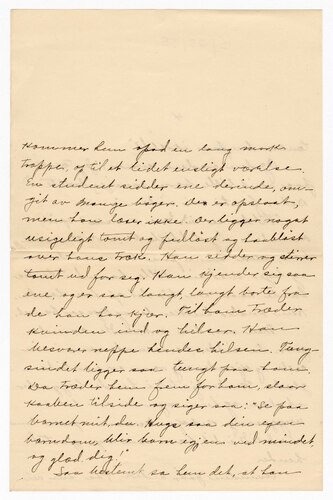 kommer hun opad en lang mørk
trappe, og til et lidet ensligt værelse.
En student sidder ene derinde, om-
git av mange bøger. Den er opslaat,
men han læser ikke. Der ligger noget
usigeligt tomt og fedløst og haabløst
over hans træk. Han sidder og stirrer
tomt ud for sig. Han kjender sig saa
ene, og er saa langt, langt borte fra
de han har kjær. Til ham træder
kvinden ind og hilser. Han
besvarer neppe hendes hilsen. Tung-
sindet ligger saa tungt paa ham.
Da træder hun frem for ham, slaar
kaaben tilside og siger saa: "Se paa
barnet mit, du. Husk saa din egen
barndom, bliv barn igjen ved mindet,
og glæd dig!"
Saa bestemt sa hun det, at han